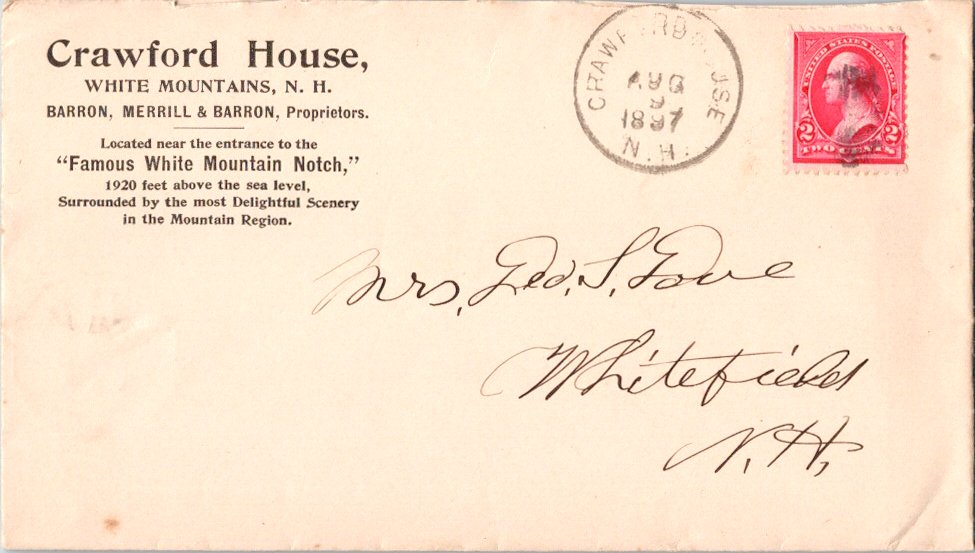 Crawford House,
WHITE MOUNTAINS, N. H.
BARRON, MERRILL & BARRON, Proprietors.
Located near the entrance to the
"Famous White Mountain Notch,"
1920 feet above the sea level,
Surrounded by the most Delightful Scenery
in the Mountain Region.
CRAWFORD HOUSE
AUG
9
1897
N.H.
UNITED STATES POSTAGE
2 2
TWO CENTS
Mrs. Geo. S. Gove
Whitefield
N.H.